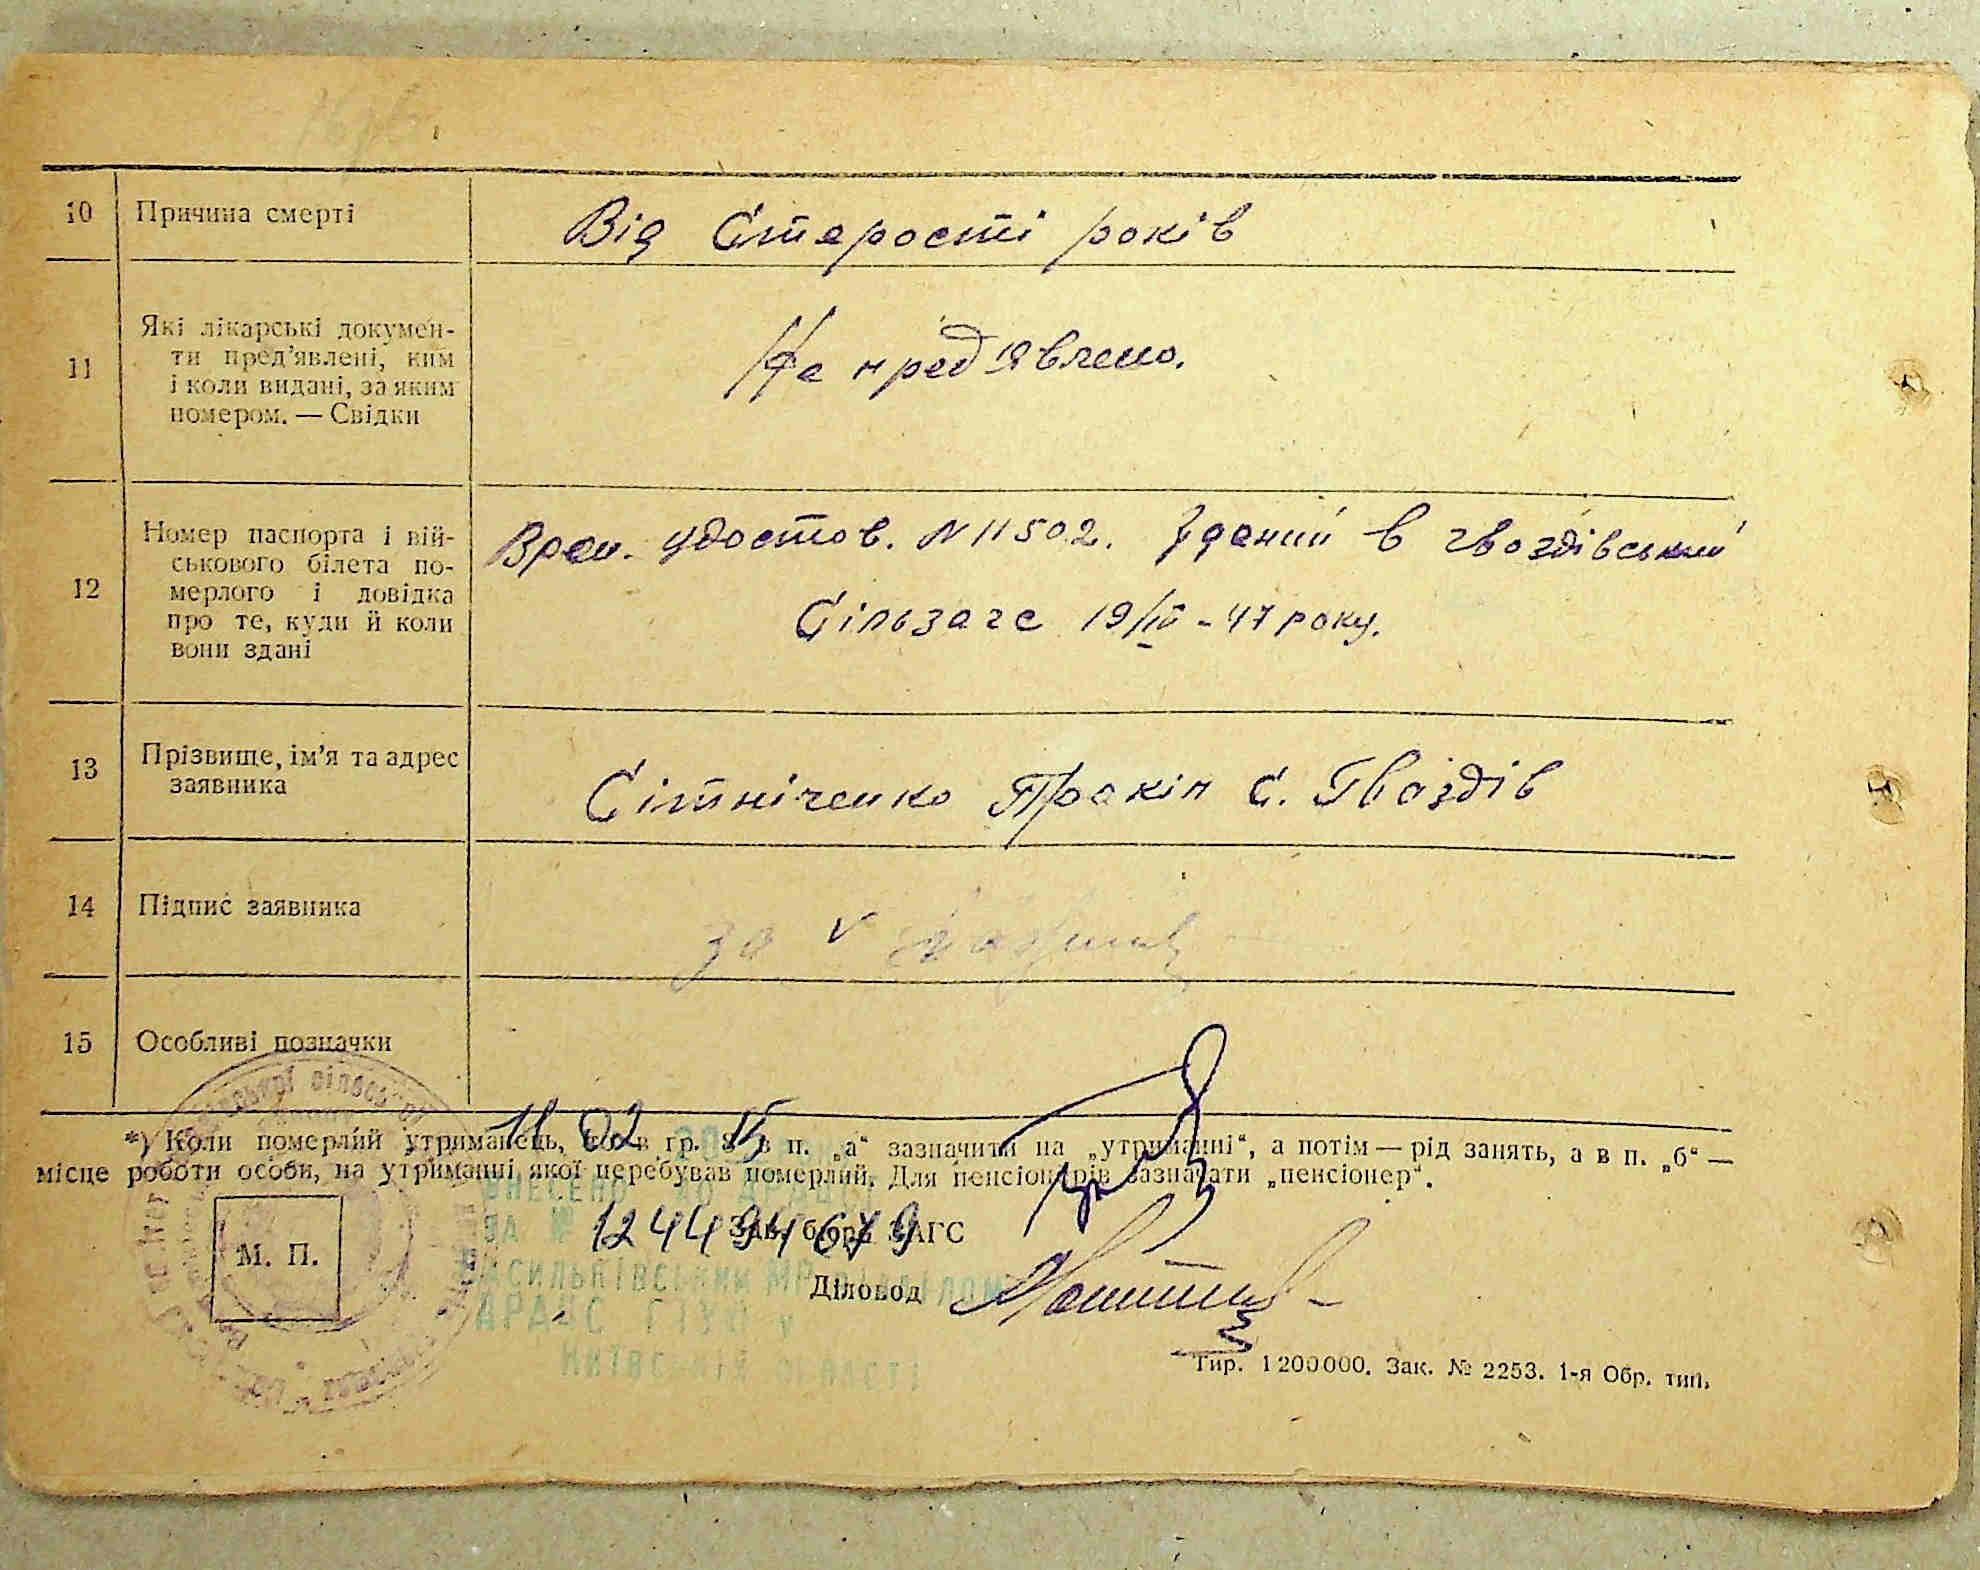 10 Причина смерті Від Старости років
11 Які лікарські докумен-
ти пред'явлені, ким
і коли видані, за яким
номером. — Свідки
Не предявлено.
12 Номер паспорта і вій-
ськового білета по-
мерлого і довідка
про те, куди й коли
вони здані
Врем. удостов. N 11502. Зданий в гвоздівський
Сільзагс 19/IV - 47 року.
13 Прізвище, ім'я та адрес
заявника
Сітніченко Прокіп С. Гвоздів
14 Підпис заявника
за v
15 Особливі позначки
11 02 15
*) Коли померлий утриманець, то в гр. 8 в п. „а“ зазначити на „утриманні“, а потім — рід занять, а в п. „б“ —
місце роботи особи, на утриманні якої перебував померлий. Для пенсіонерів зазначати „пенсіонер“.
ВНЕСЕНО ДО
ЗА № 1244934679
Зав. бюро ЗАГС
М. П.
ВАСИЛЬКІВСЬКИМ МР ВІДДІЛОМ
Діловод
ДРАЦС ГТУЮ у
КИЇВСЬКІЙ ОБЛАСТІ
Тир. 1200000. Зак. № 2253. 1-я Обр. тип.